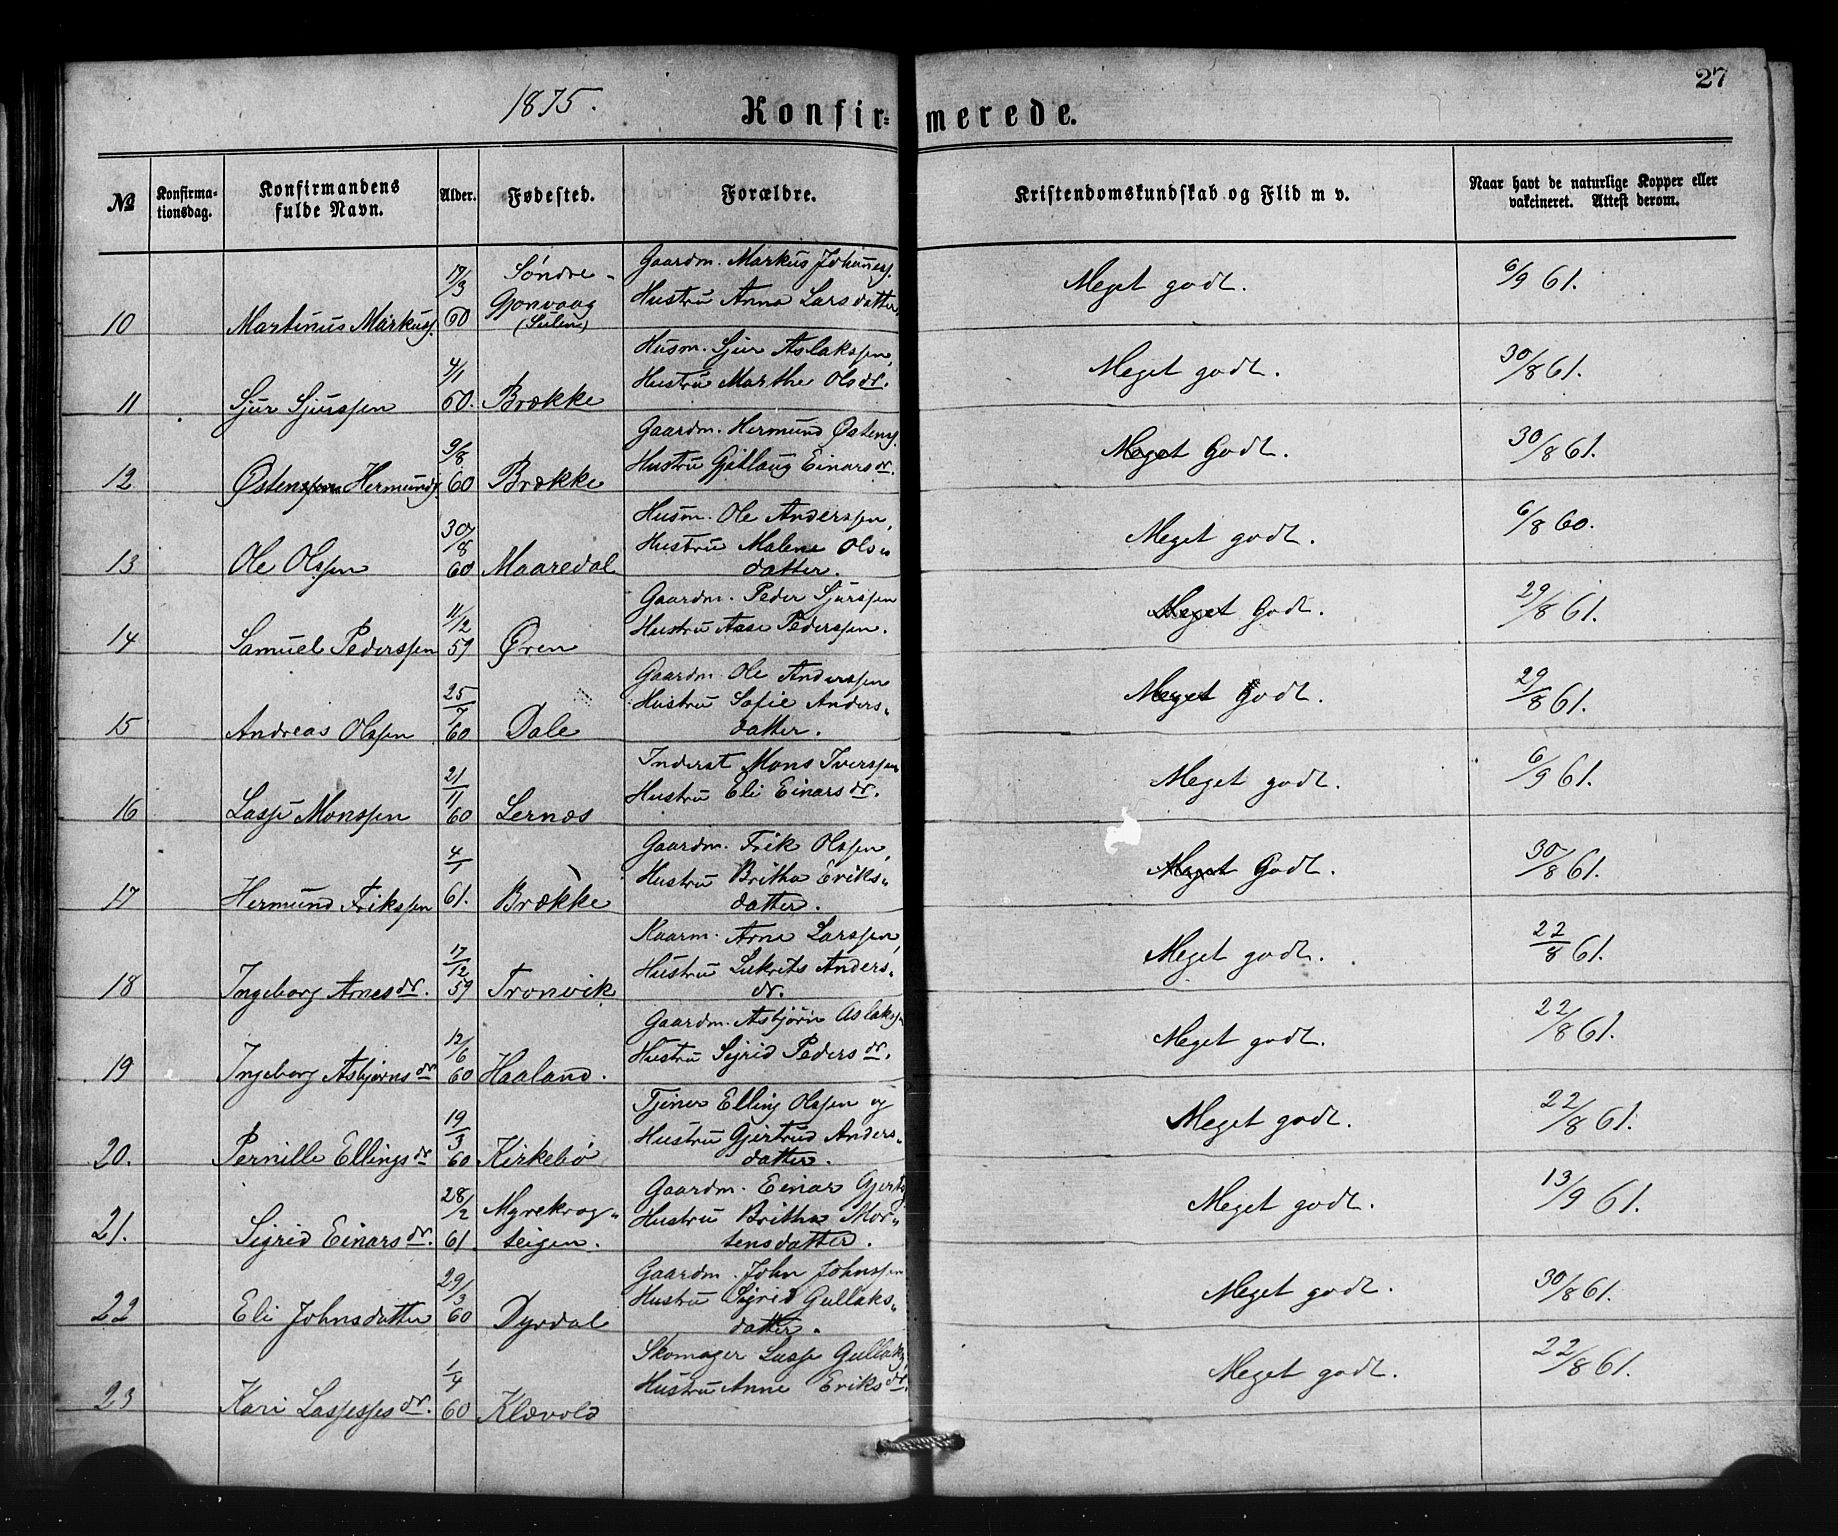 27
1875.
Konfir= merede.
№ Konfirma-tionsdag. Konfirmandens fulde Navn. Alder. Fødested. Forældre. Kristendomskundskab og Flid m v. Naar havt de naturlige Kopper eller vakcineret. Attest derom.
10 Martinus Markuss. 19/3 60 Søndre Gjonvaag (Sulen) Gaardm. Markus Johaness. Hustru Anna Larsdatter, Meget godt. 6/9 61.
11 Sjur Sjurssen 4/1 60. Brække Husm. Sjur Aslakssen, Hustru Marthe Olsdr. Meget godt. 30/8 61.
12 Østen Hermunds. 9/8 60 Brække Gaardm. Hermund Østens. Hustru Gjetlaug Einarsdr. Meget Godt. 30/8 61.
13 Ole Olssen 30/8 60 Maaredal Husm. Ole Anderssen, Hustru Malene Ols„ datter. Meget godt. 6/8 60.
14 Samuel Pederssen 11/12 59 Øren Gaardm. Peder Sjurssen Hustru Aase Pederssen. Meget Godt. 29/8 61.
15 Andreas Olssen 25/7 60 Dale Gaardm. Ole Anderssen Hustru Sofie Anders„ datter. Meget Godt. 29/8 61.
16 Lasse Monssen 21/11 60 Lernæs Inderst Mons Iverssen Hustru Eli Einarsdr. Meget godt. 6/9 61.
17 Hermund Erikssen 4/1 61. Brække Gaardm. Erik Olssen, Hustru Britha Eriks„ datter. Meget Godt. 30/8 61.
18 Ingeborg Arnesdr. 17/12 59 Tronvik Kaarm. Arne Larssen, Hustru Sukrits Anders„ dr. Meget godt. 22/8 61.
19 Ingeborg Asbjørnsdr 12/6 60 Haaland. Gaardm. Asbjørn Aslakss. Hustru Sigrid Pedersdr. Meget godt. 22/8 61.
20. Pernille Ellingsdr 19/3 60 Kirkebø Tjener Elling Olssen og Hustru Gjertrud Anders„ datter. Meget godt. 22/8 61.
21. Sigrid Einarsdr. 28/2 61. Myrekrog„ teigen. Gaardm. Einar Hustru Britha Mor„ tensdatter. Meget godt. 13/9 61.
22 Eli Johnsdatter 29/3 60 Dyrdal Gaardm. John Johnssen Hustru Sigrid Gullaks„ datter. Meget godt. 30/8 61.
23 Kari Lassesdr. 1/4 60 Klævold Skomager Lasse Gullaks. Hustru Anne Eriksdr. Meget godt. 22/8 61.